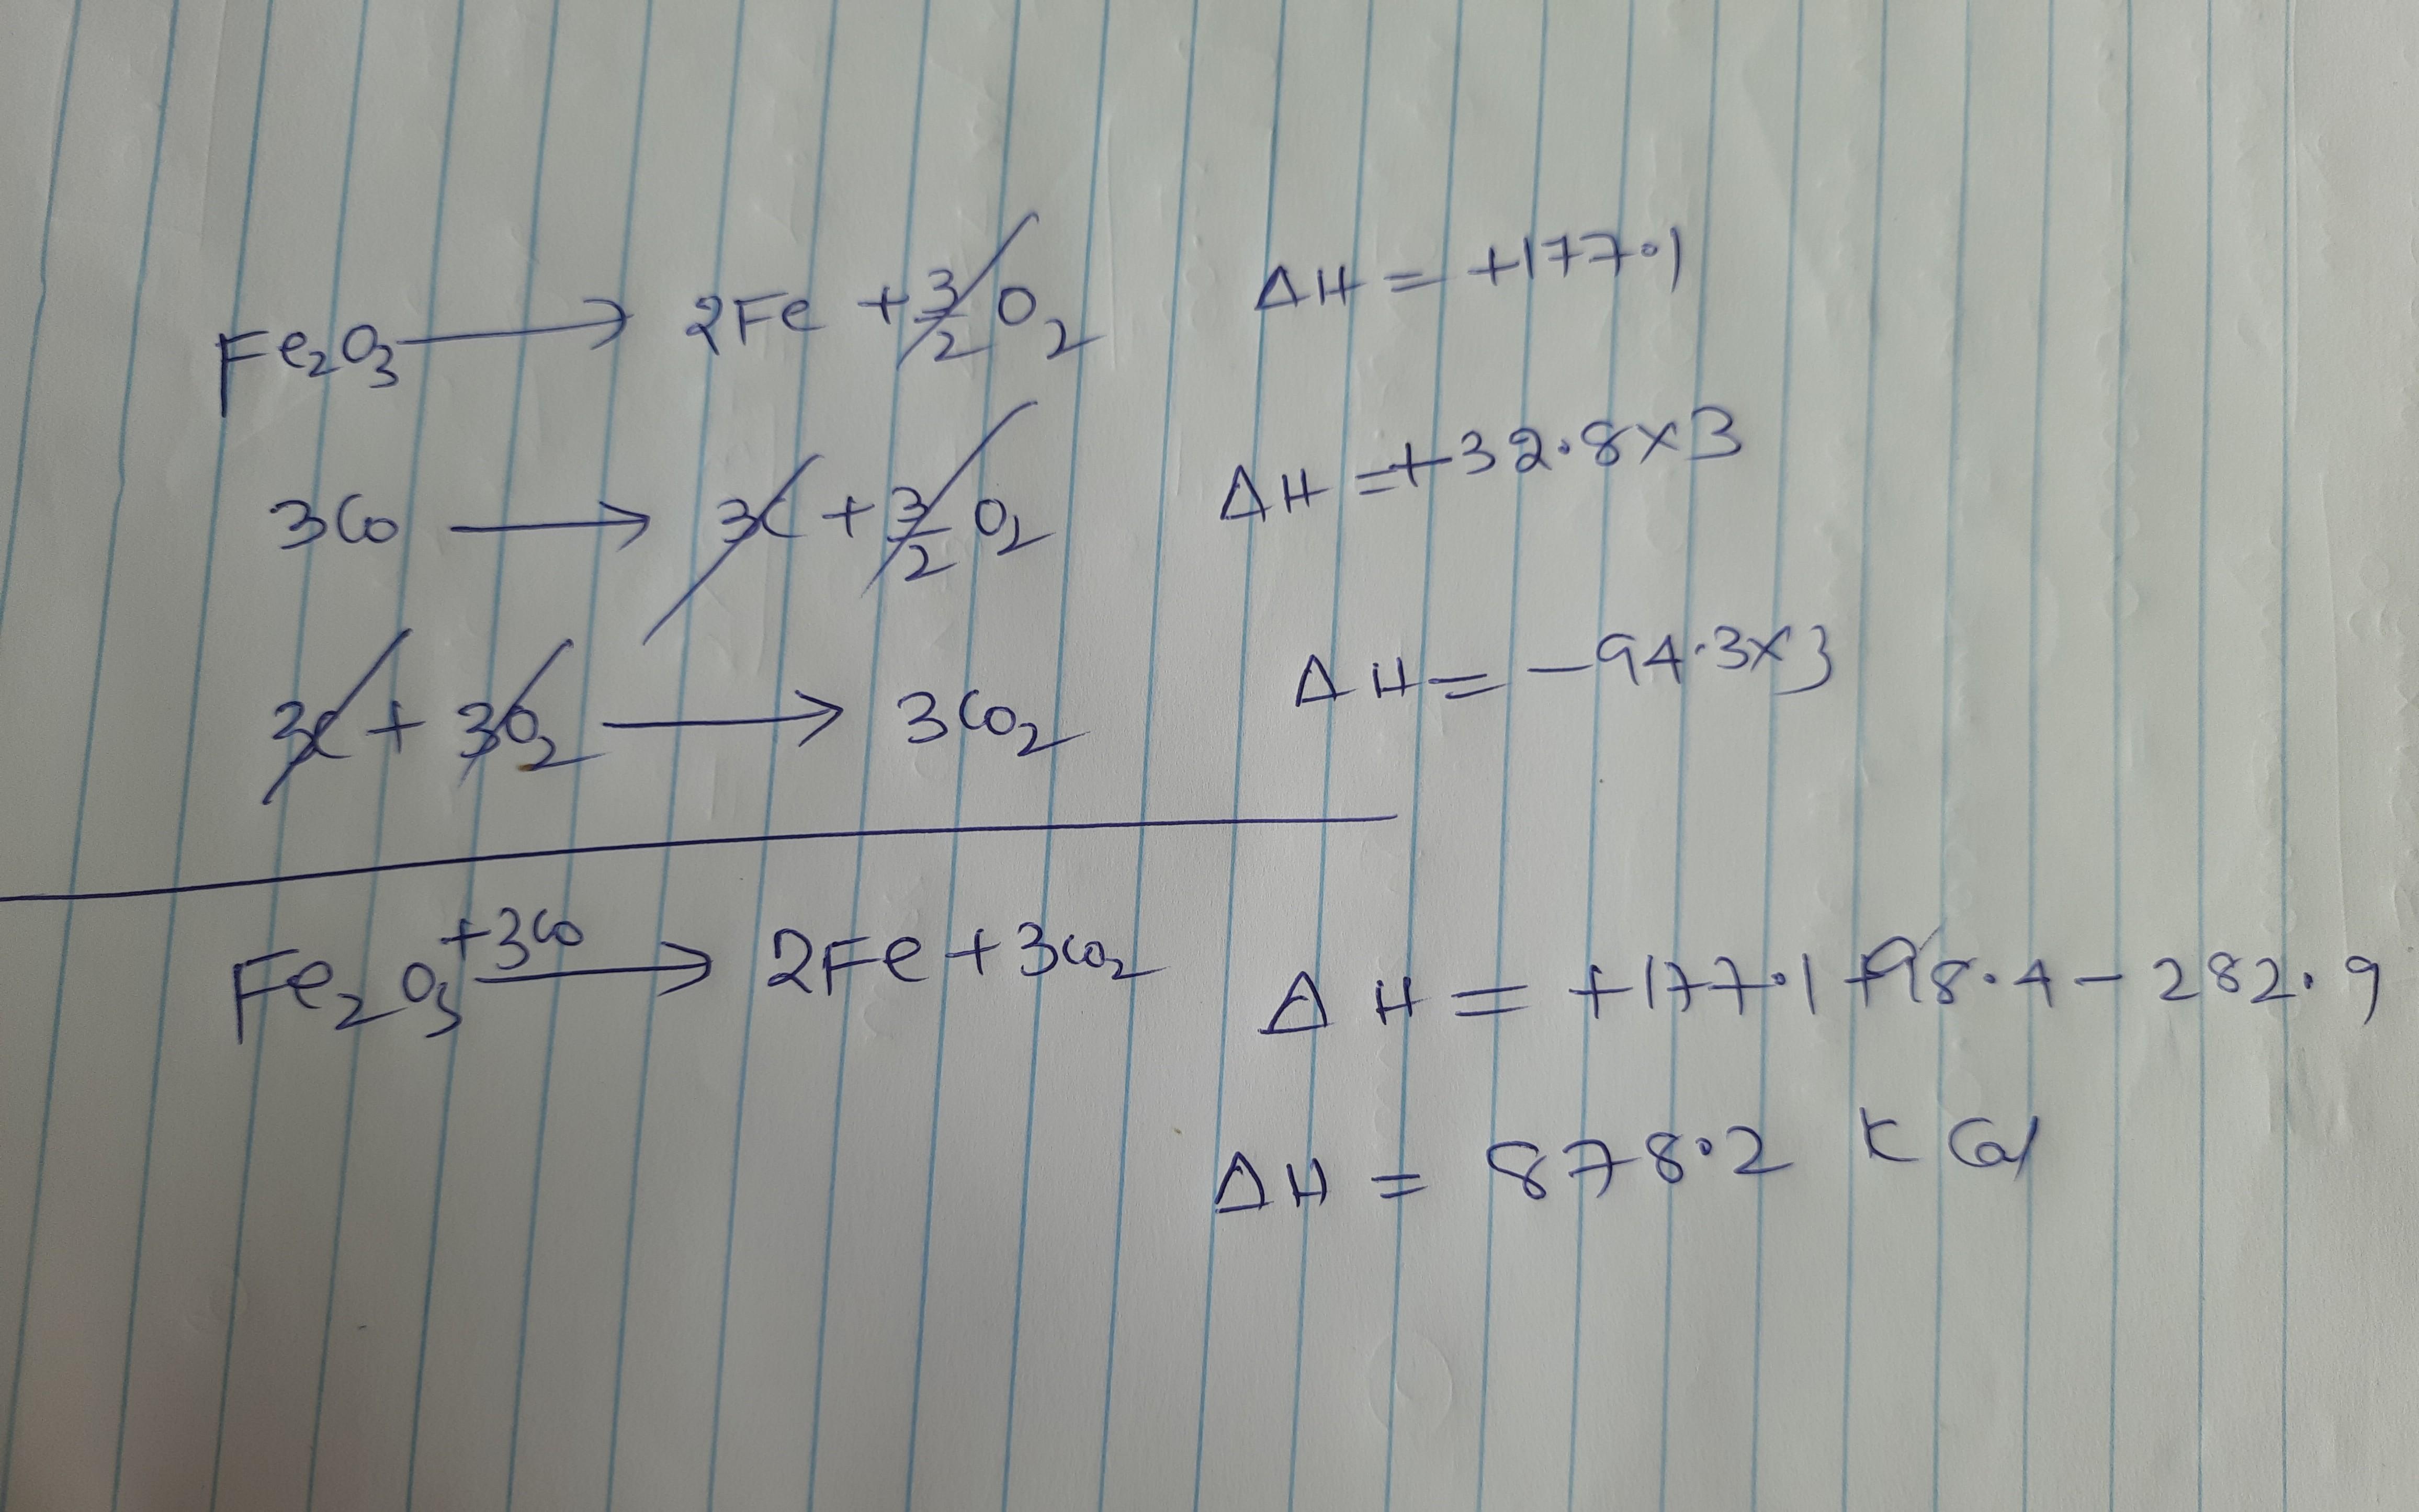 Fe₂O₃ ⟶ 2Fe + 3/2 O₂ ΔH = +177.1
3CO ⟶ 3C + 3/2 O₂ ΔH = +32.8×3
3C + 3O₂ ⟶ 3CO₂ ΔH = -94.3×3
Fe₂O₃ +3CO ⟶ 2Fe + 3CO₂ ΔH = +177.1 +98.4 - 282.9
ΔH = 878.2 K Cal